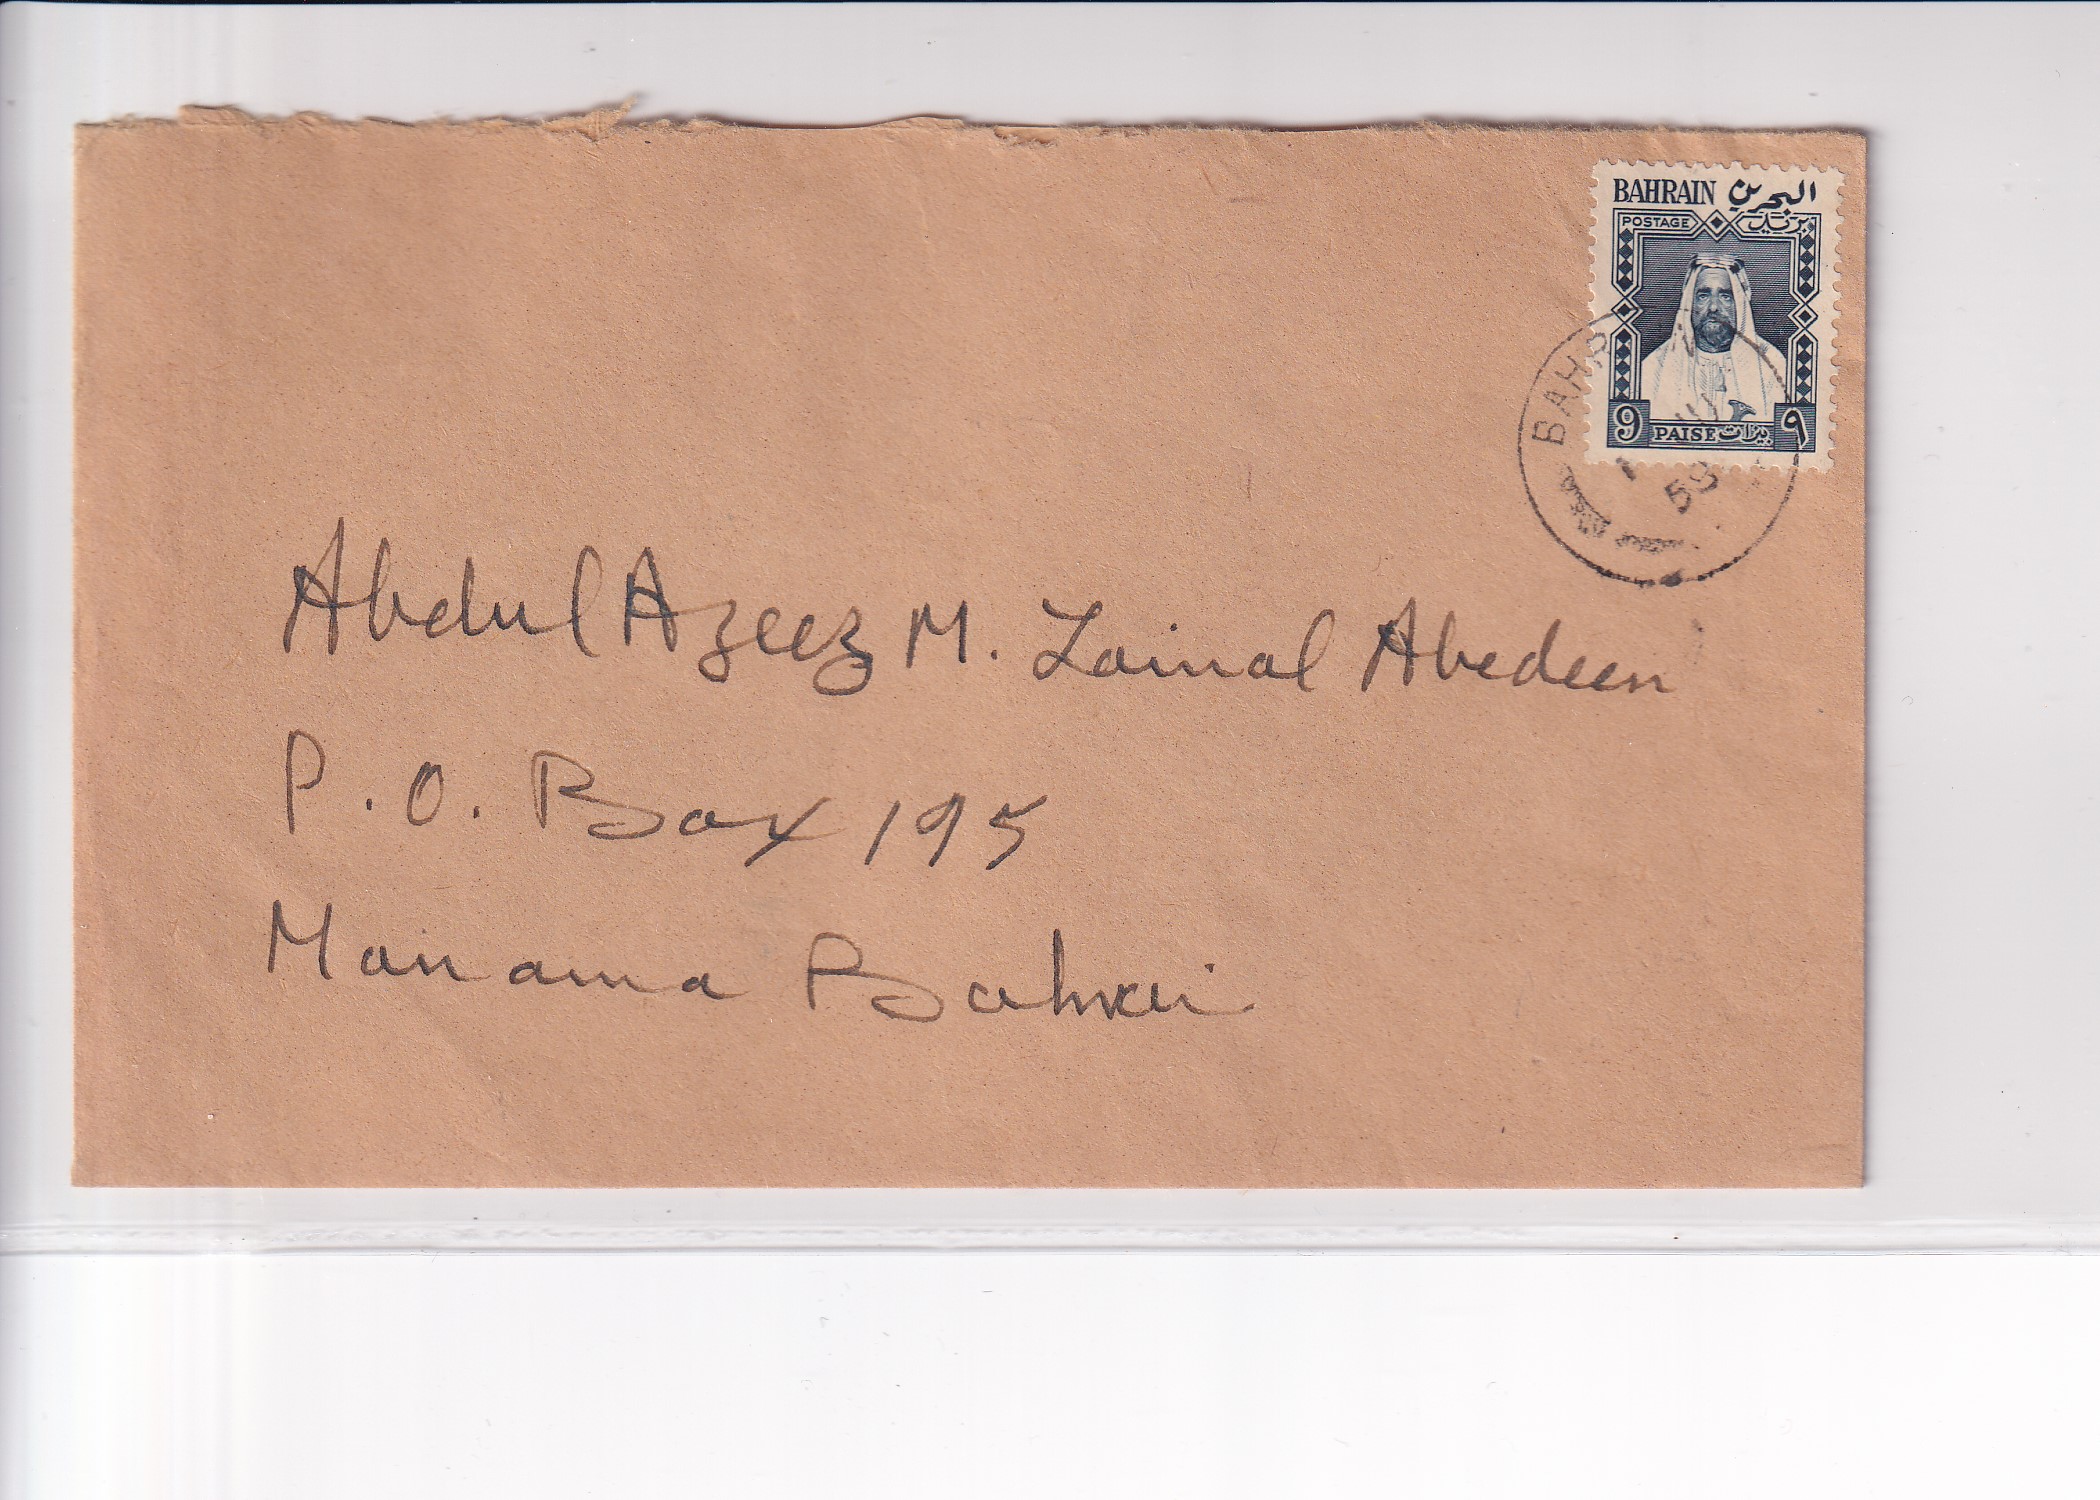 BAHRAIN البحرين
POSTAGE بريد
9 PAISE بيزات ٩
BAHR
58
Abdul Azeez M. Zainal Abedeen
P.O. Box 195
Manama Bahrain